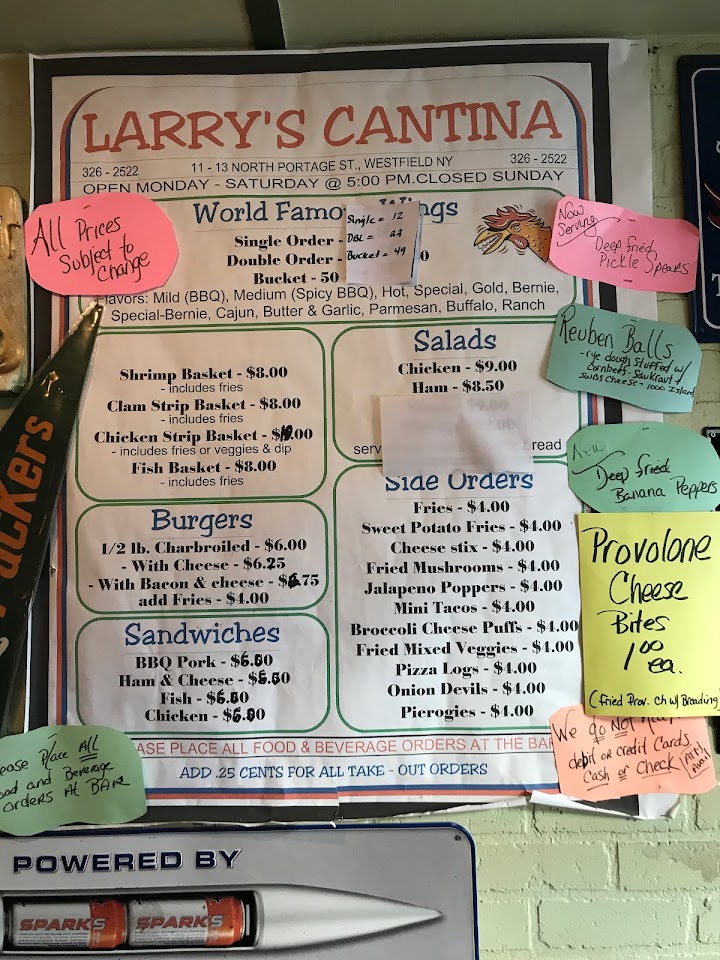 LARRY'S CANTINA
326 - 2522
11 - 13 NORTH PORTAGE ST., WESTFIELD NY
326 - 2522
OPEN MONDAY - SATURDAY @ 5:00 PM.CLOSED SUNDAY
All Prices
Subject to
Change
World Famo
ngs
Single Order -
Double Order -
Bucket - 50
Single = 12
DBL = 22
Bucket = 49
0
Flavors: Mild (BBQ), Medium (Spicy BBQ), Hot, Special, Gold, Bernie,
Special-Bernie, Cajun, Butter & Garlic, Parmesan, Buffalo, Ranch
Now
Serving
Deep fried
Pickle Spears
Reuben Balls
- rye dough stuffed w/
cornbeef - Saurkraut +
swiss cheese - 1000 Island
New
Deep fried
Banana Peppers
Provolone
Cheese
Bites
1.00
ea.
(fried Prov. ch w/ Breading
Shrimp Basket - $8.00
- includes fries
Clam Strip Basket - $8.00
- includes fries
Chicken Strip Basket - $.00
- includes fries or veggies & dip
Fish Basket - $8.00
- includes fries
Salads
Chicken - $9.00
Ham - $8.50
serv
bread
Burgers
1/2 lb. Charbroiled - $6.00
- With Cheese - $6.25
- With Bacon & cheese - $6.75
add Fries - $4.00
Sandwiches
BBQ Pork - $6.50
Ham & Cheese - $6.50
Fish - $6.50
Chicken - $6.50
Side Orders
Fries - $4.00
Sweet Potato Fries - $4.00
Cheese stix - $4.00
Fried Mushrooms - $4.00
Jalapeno Poppers - $4.00
Mini Tacos - $4.00
Broccoli Cheese Puffs - $4.00
Fried Mixed Veggies - $4.00
Pizza Logs - $4.00
Onion Devils - $4.00
Pierogies - $4.00
EASE PLACE ALL FOOD & BEVERAGE ORDERS AT THE BAR
ADD .25 CENTS FOR ALL TAKE - OUT ORDERS
We do Not
debit or credit Cards
Cash or Check
ease Place All
ood and Beverage
orders At BAR
Packers
POWERED BY
SPARKS
SPARKS